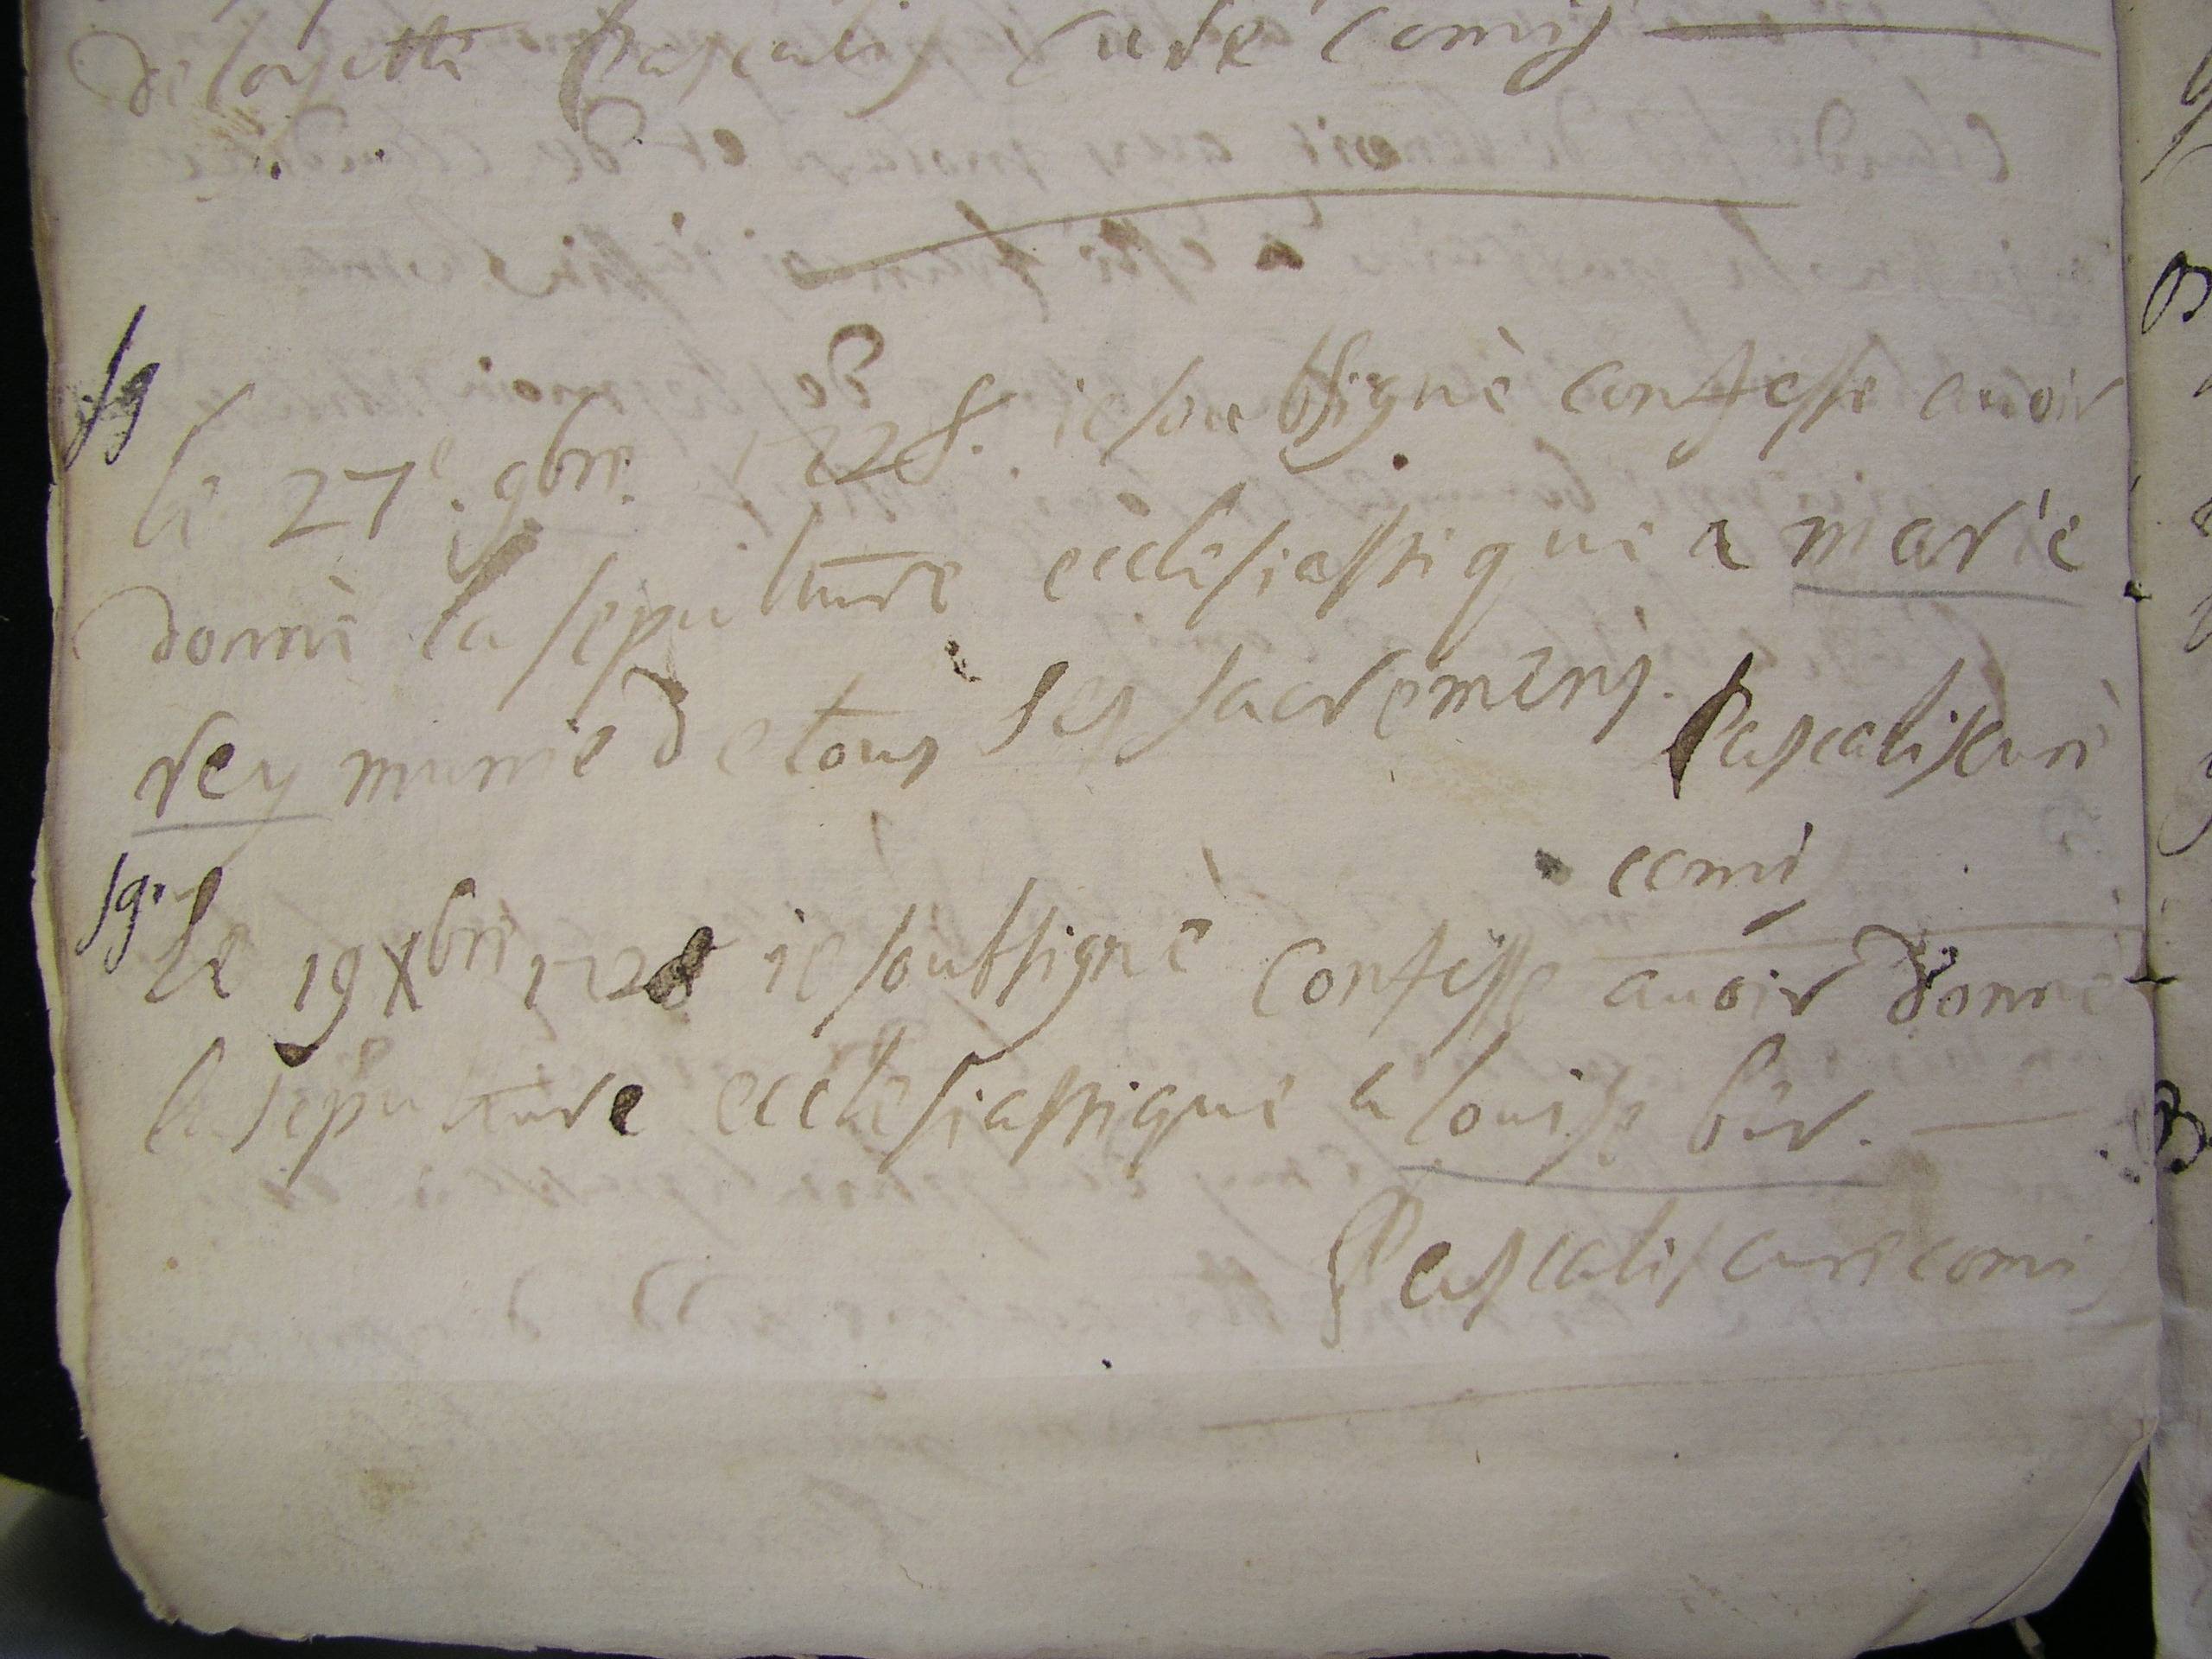 Pascalis curé comis
Sg
le 27e. 9bre. 1728. ie soubssigné confesse auoir
donné la sepulture ecclesiastique a marie
rey munie de tous ses sacremens. Pascalis curé
comis
Sg.
Le 19 Xbre 1728 ie soubsigné confesse auoir donné
la sepulture ecclesiastique a louise
Pascalis curé comis